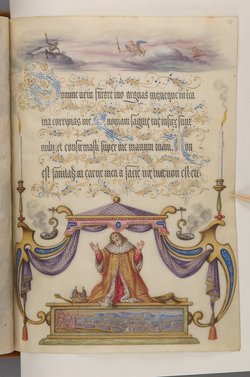 Domine ne in furore tuo arguas me, neque in ira
tua corripias me. Quoniam sagitte tue infixe sunt
michi, et confirmasti super me manum tuam. Non
est sanitas in carne mea a facie ire tue, non est etc.